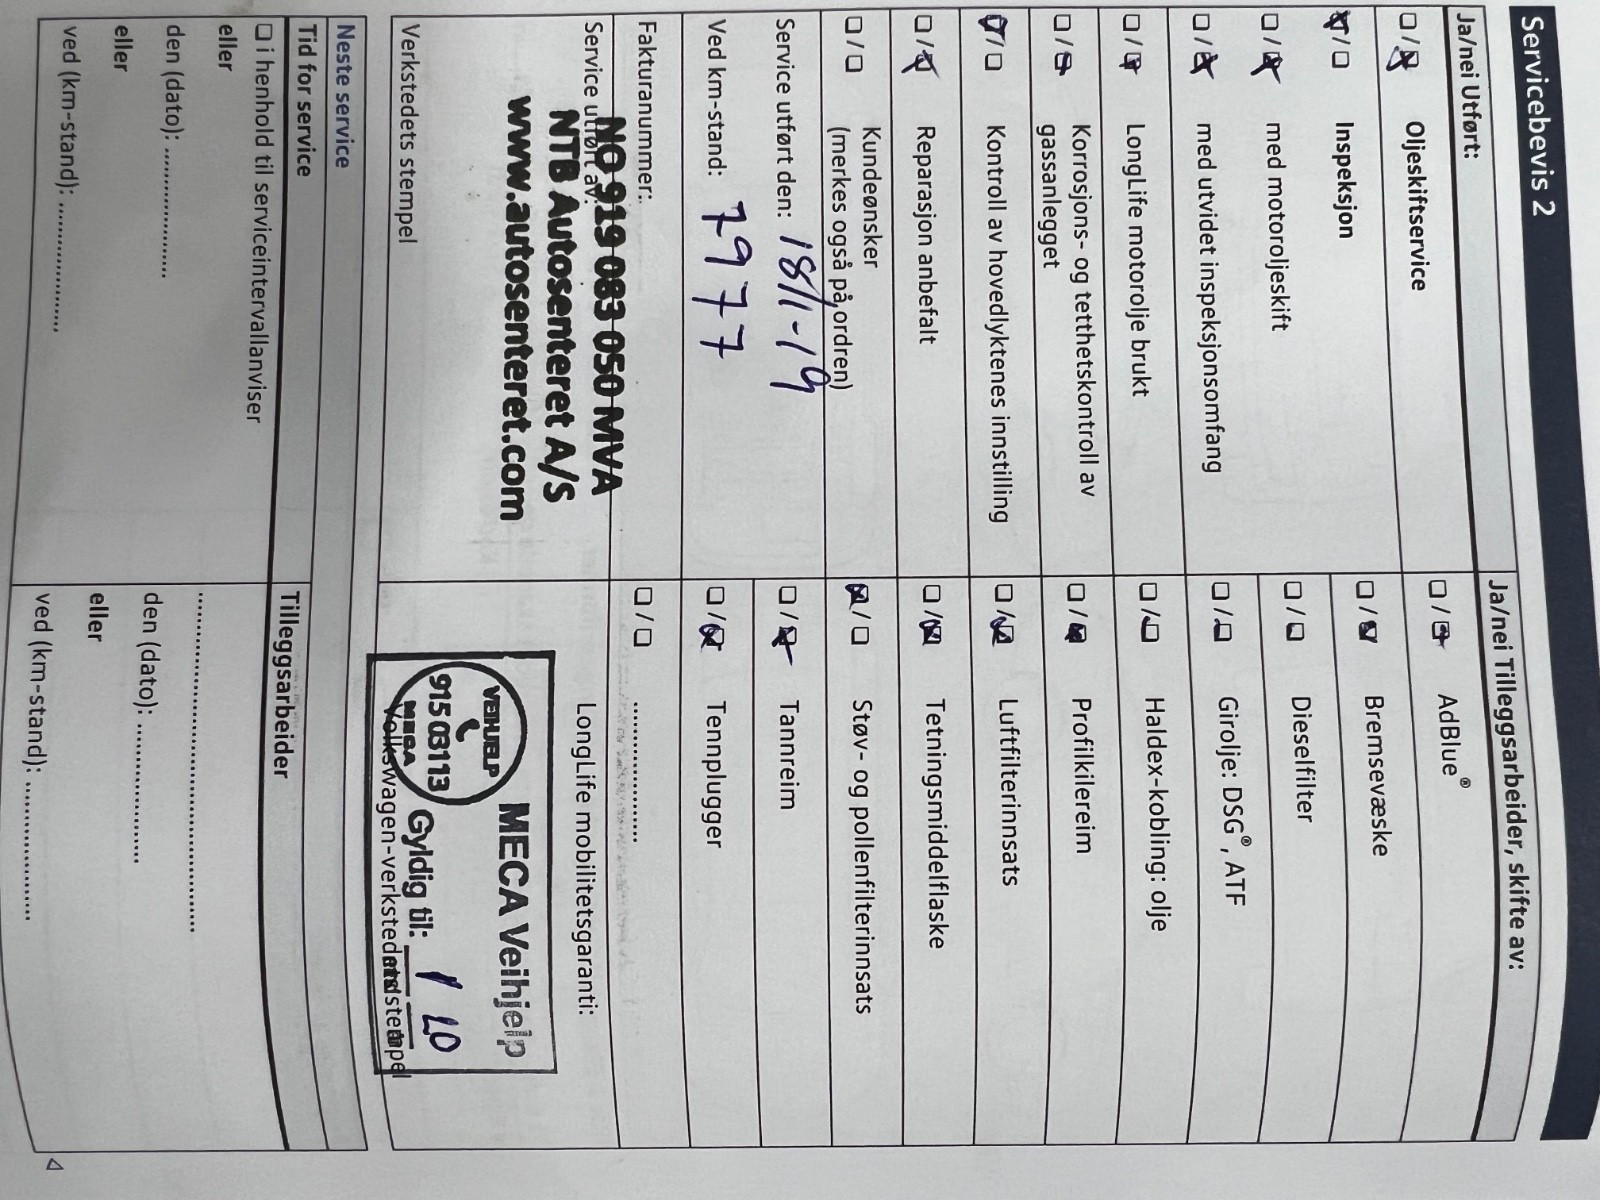 Servicebevis 2
Ja/nei Utført:
☐/☒ Oljeskiftservice
☒/☐ Inspeksjon
☐/☒ med motoroljeskift
☐/☒ med utvidet inspeksjonsomfang
☐/☒ LongLife motorolje brukt
☐/☒ Korrosjons- og tetthetskontroll av
gassanlegget
☒/☐ Kontroll av hovedlyktenes innstilling
☐/☒ Reparasjon anbefalt
☐/☐ Kundeønsker
(merkes også på ordren)
Service utført den: 18/1-19
Ved km-stand: 79777
Fakturanummer:
Service utført av:
NO 919 083 050 MVA
NTB Autosenteret A/S
www.autosenteret.com
Verkstedets stempel
Ja/nei Tilleggsarbeider, skifte av:
☐/☒ AdBlue®
☐/☒ Bremsevæske
☐/☐ Dieselfilter
☐/☐ Girolje: DSG®, ATF
☐/☐ Haldex-kobling: olje
☐/☒ Profilkilereim
☐/☒ Luftfilterinnsats
☐/☒ Tetningsmiddelflaske
☒/☐ Støv- og pollenfilterinnsats
☐/☒ Tannreim
☐/☒ Tennplugger
☐/☐ ....................
LongLife mobilitetsgaranti:
MECA Veihjelp
VEIHJELP
915 03113
MECA
Gyldig til: 1 20
Volkswagen-verkstedets stempel
Neste service
Tid for service
☐ i henhold til serviceintervallanviser
eller
den (dato): ..................
eller
ved (km-stand): ..................
Tilleggsarbeider
..................................................
den (dato): ....................
eller
ved (km-stand): ....................